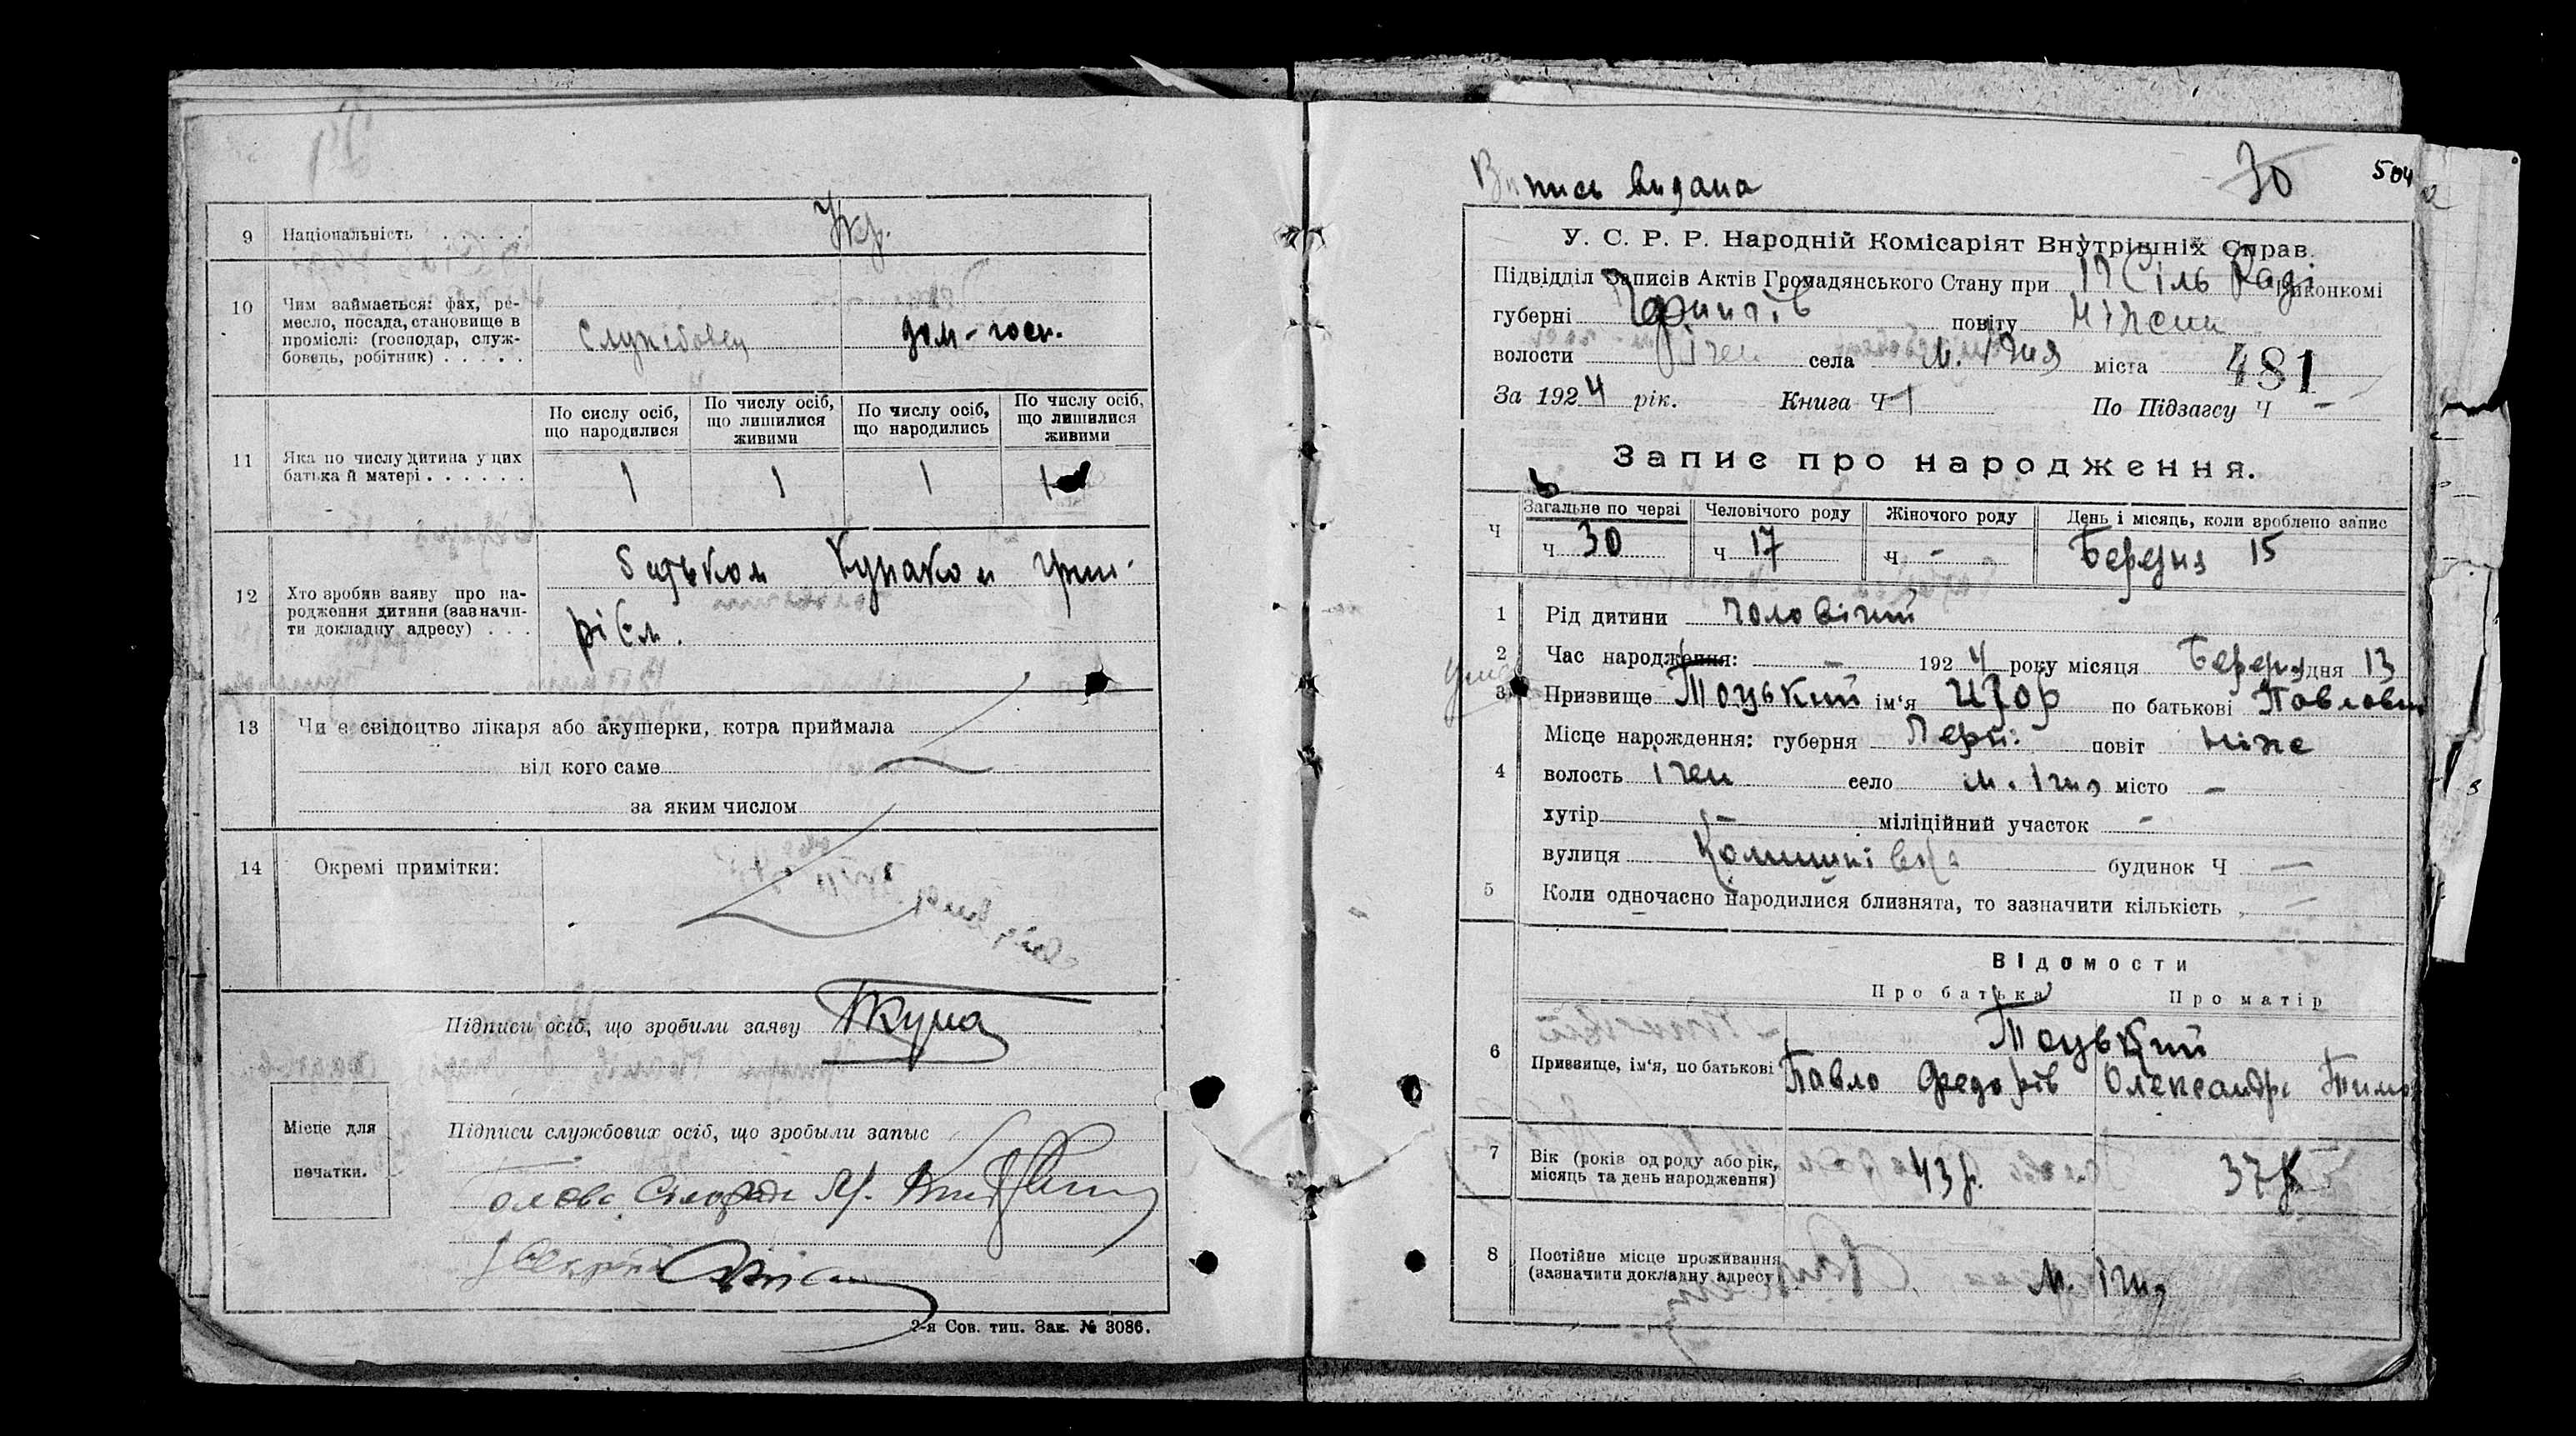 9 Національність . . . . . Укр.
10 Чим займається: фах, ре-
месло, посада, становище в
промислі: (господар, служ-
бовець, робітник) . . . . .
Службовец дом-госп.
По сислу осіб, що народилися
По числу осіб, що лишилися живими
По числу осіб, що народились
По числу осіб, що лишилися живими
11 Яка по числу дитина у цих
батька й матері . . . . . .
1 1 1 1
12 Хто зробив заяву про на-
родження дитини (зазначи-
ти докладну адресу) . . .
батьком
рієм.
13 Чи є свідоцтво лікаря або акушерки, котра приймала
від кого саме
за яким числом
14 Окремі примітки:
Підписи осіб, що зробили заяву
Місце для
печатки.
Підписи службових осіб, що зробыли запыс
Голова Сілради
2-я Сов. тип. Зак. № 3086.
Випись видана 30 504
У. С. Р. Р. Народній Комісаріят Внутрішніх Справ.
Підвідділ Записів Актів Громадянського Стану при 1й Сіль Раді Виконкомі
губерні Чернигів повіту Ніжен
волости Ічен села м. Ічня міста 481
За 1924 рік. Книга Ч 1 По Підзагсу Ч -
Запис про народження.
Ч Загальне по черзі Человічого роду Жіночого роду День і місяць, коли зроблено запис
ч 30 ч 17 ч - Березня 15
1 Рід дитини чоловічий
2 Час народження: - 1924 року місяця Березня дня 13
3 Призвище Тоцький ім'я Ігор по батькові Павлович
4 Місце нарождення: губерня Черн: повіт Ніже
волость Ічен село м. Ічня місто -
хутір - міліційний участок -
вулиця будинок Ч -
5 Коли одночасно народилися близнята, то зазначити кількість -
Відомости
Про батька Про матір
6 Призвище, ім'я, по батькові
Тоцький
Павло Федорів Олександра Тимо
7 Вік (років од роду або рік,
місяць та день народження)
43 р. 37 р.
8 Постійне місце проживання
(зазначити докладну адресу)
м. Ічня